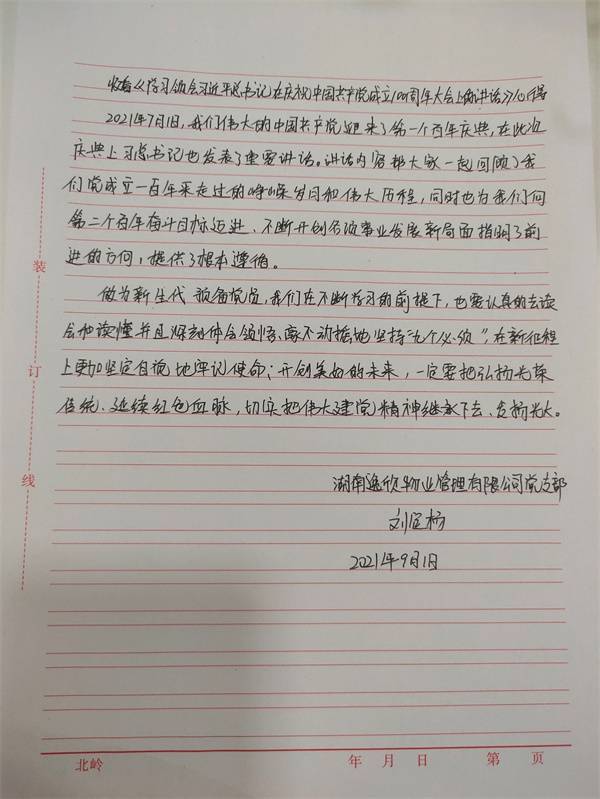 收看《学习领会习近平总书记在庆祝中国共产党成立100周年大会上的讲话》心得
2021年7月1日,我们伟大的中国共产党迎来了第一个百年庆典,在此次
庆典上习总书记也发表了重要讲话。讲话内容帮大家一起回顾了我
们党成立一百年来走过的峥嵘岁月和伟大历程,同时也为我们向
第二个百年奋斗目标迈进、不断开创各项事业发展新局面指明了前
进的方向,提供了根本遵循。
做为新生代预备党员,我们在不断学习的前提下,也要认真的去读
会和读懂并且深刻体会领悟、毫不动摇地坚持“九个必须”,在新征程
上更加坚定自觉地牢记使命;开创美好的未来,一定要把弘扬光荣
传统、延续红色血脉,切实把伟大建党精神继承下去、发扬光大。
湖南逸欣物业管理有限公司党支部
刘
2021年9月1日
装
订
线
北岭
年 月 日
第 页